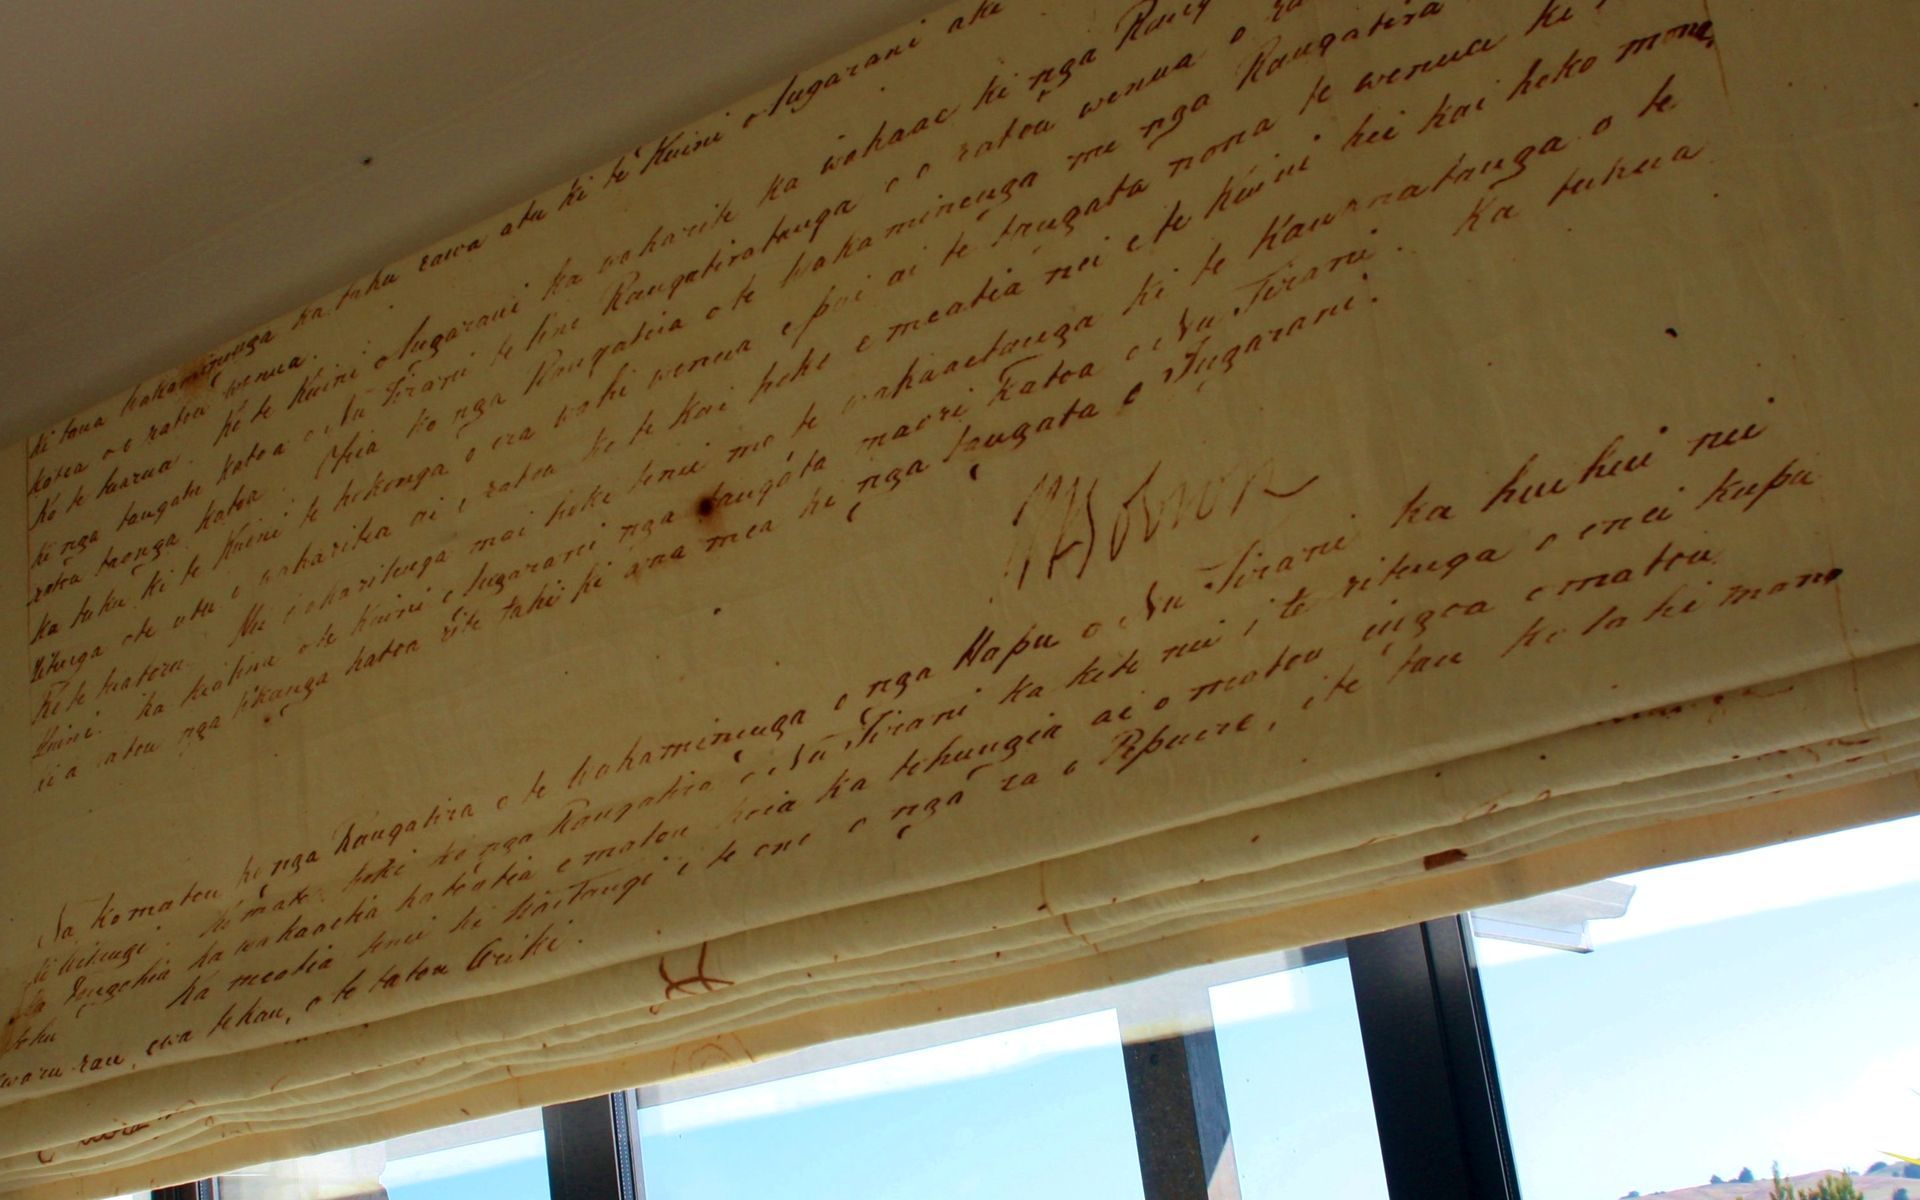 ki taua wakaminenga ka tuku rawa atu ki te Kuini o Ingarani ake
katoa o o ratou wenua.
Ko te tuarua. Ko te Kuini o Ingarani ka wakarite ka wakaae ki nga Rang
ki nga tangata katoa o Nu Tirani te tino Rangatiratanga o o ratou wenua o ra
ratou taonga katoa. Otiia ko nga Rangatira o te wakaminenga me nga Rangatira
ka tuku ki te Kuini te hokonga o era wahi wenua e pai ai te tangata nona te wenua ki
ritenga o te utu e wakaritea ai e ratou ko te kai hoko e meatia nei e te Kuini hei kai hoko mona.
Ko te tuatoru. Hei wakaritenga mai hoki tenei mo te wakaaetanga ki te Kawanatanga o te
Kuini. Ka tiakina e te Kuini o Ingarani nga tangata maori katoa o Nu Tirani. Ka tukua
ki a ratou nga tikanga katoa rite tahi ki ana mea ki nga tangata o Ingarani.
W Hobson
Na, ko matou ko nga Rangatira o te wakaminenga o nga Hapu o Nu Tirani ka huihui nei
ki Waitangi. Ko matou hoki ko nga Rangatira o Nu Tirani ka kite nei i te ritenga o enei kupu
Ka tangohia ka wakaaetia katoatia e matou koia ka tohungia ai o matou ingoa o matou
tohu
Ka meatia tenei ki Waitangi i te ono o nga ra o Pepuere, i te tau kotahi mano
waru rau, ewa tekau, o to tatou Ariki.